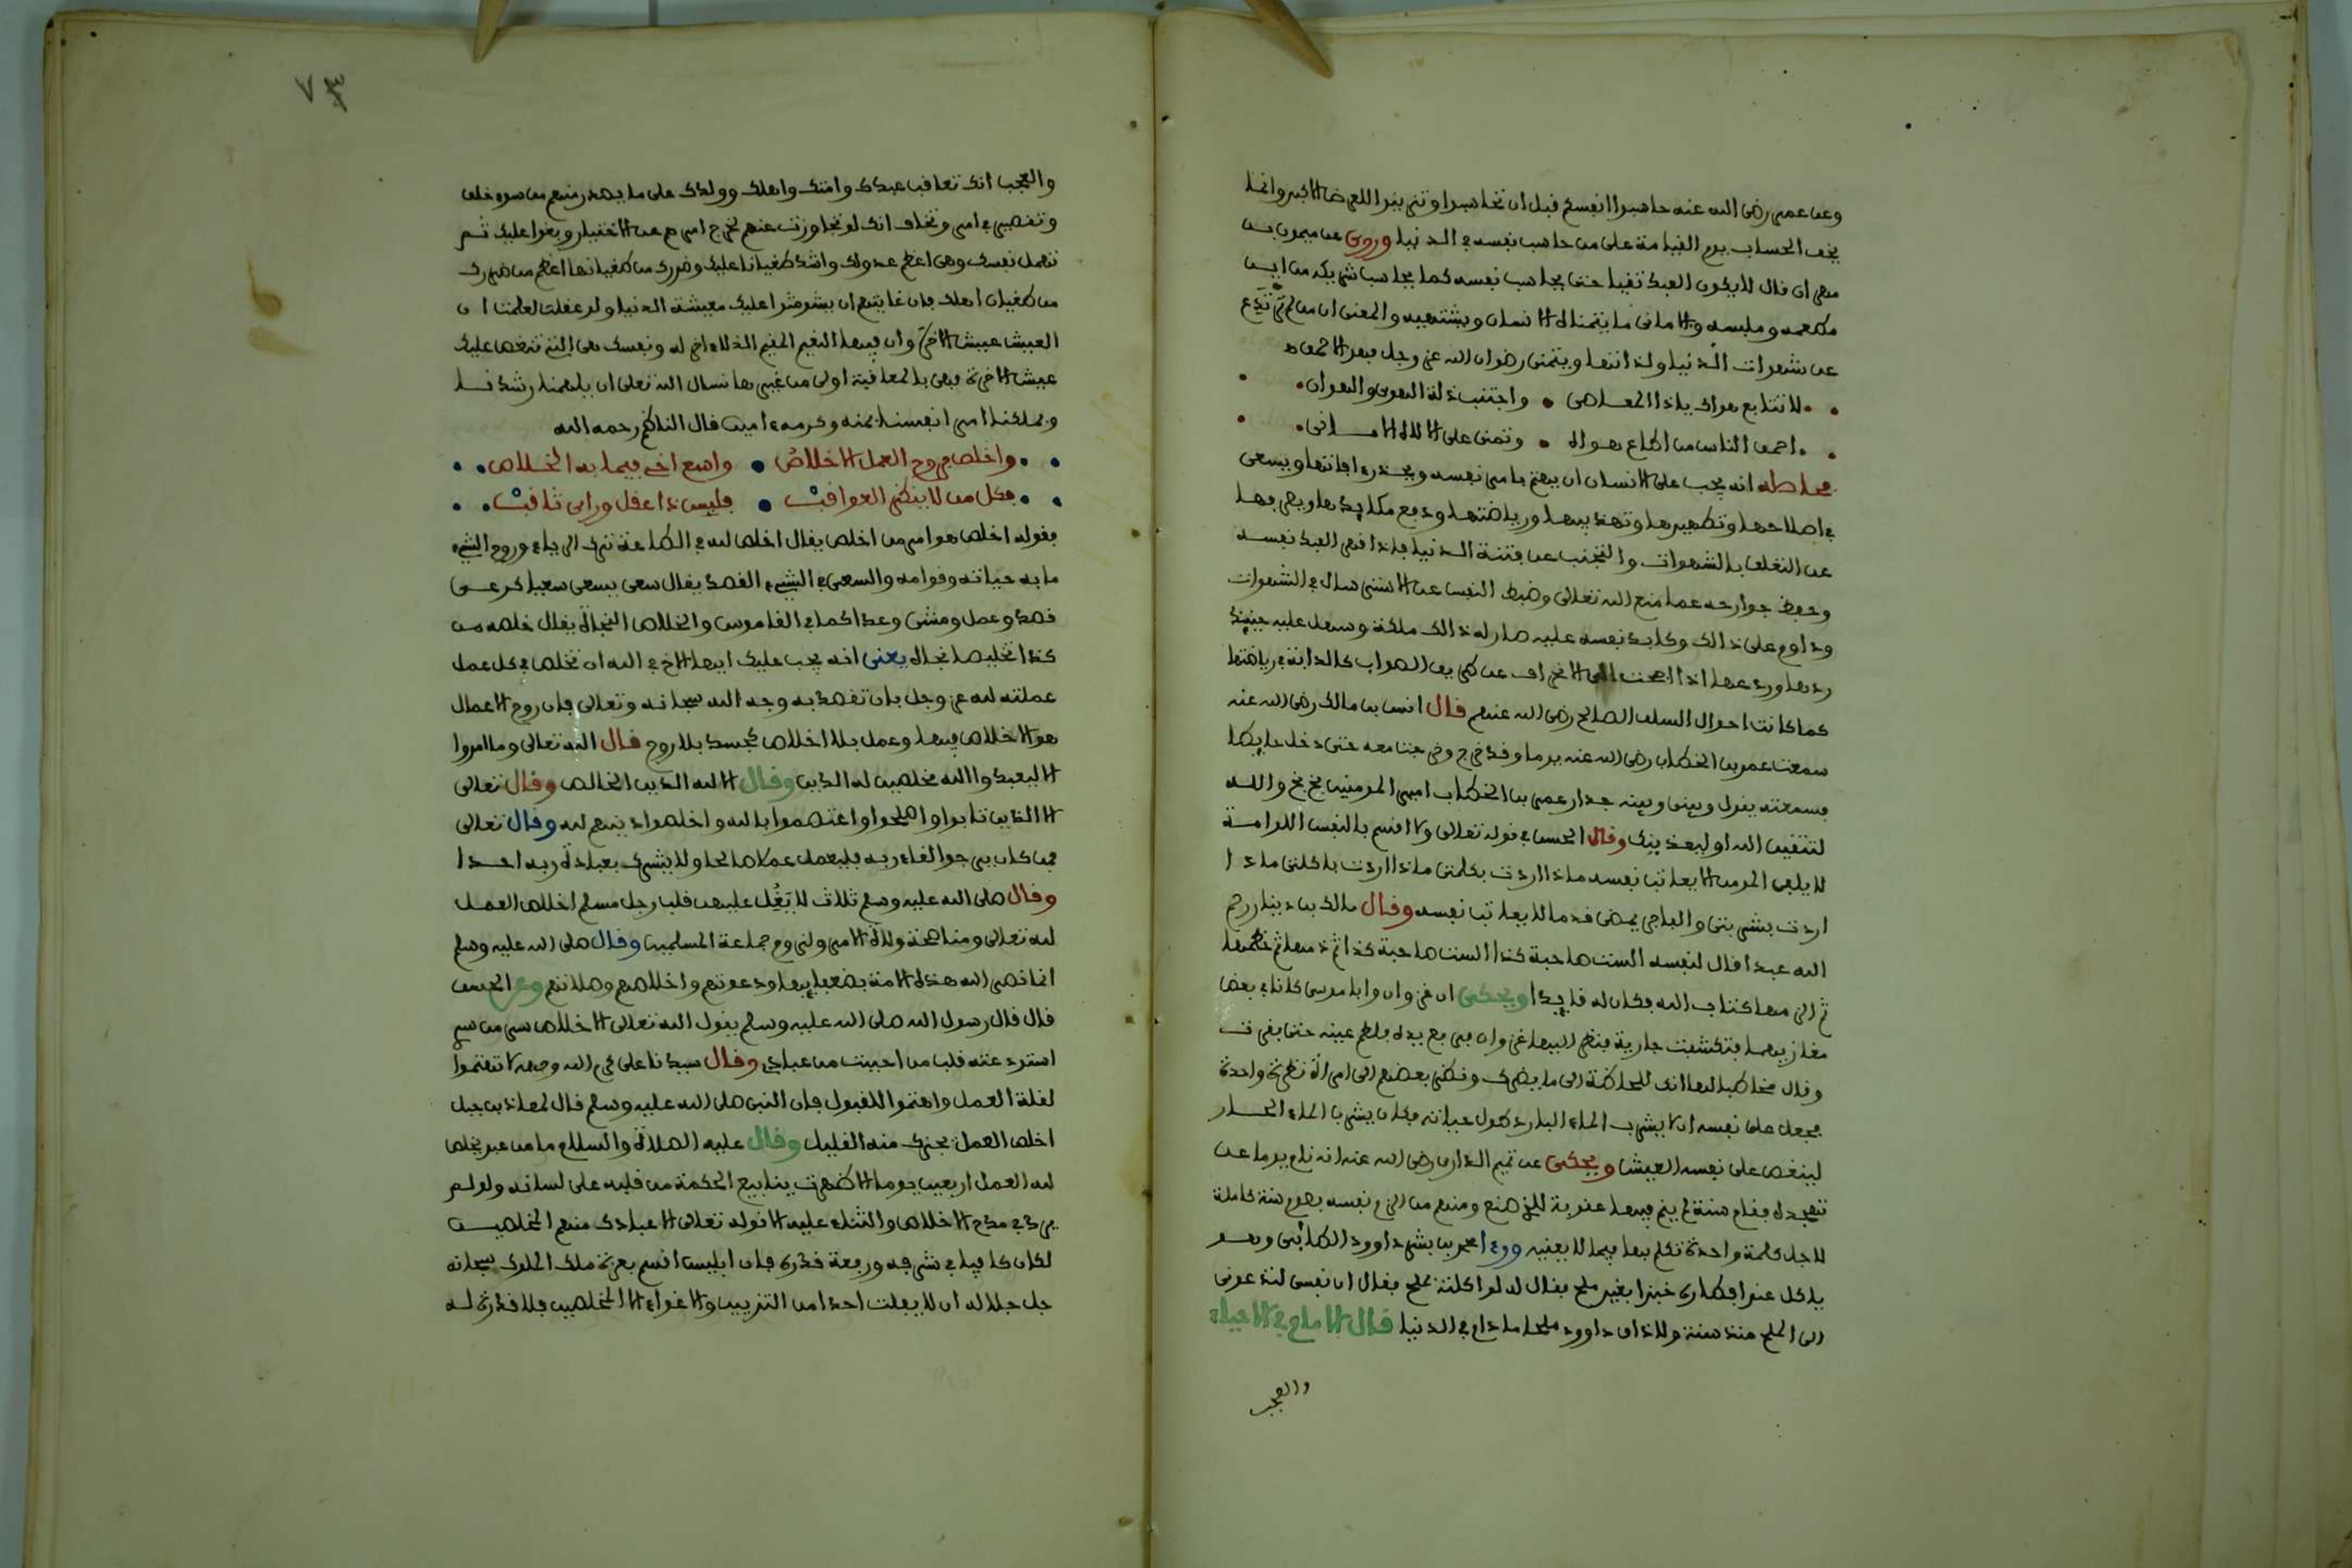 وعن عمر رضي الله عنه حاسبوا انفسكم قبل ان تحاسبوا وتزينوا للعرض الاكبر وانما
يخف الحساب يوم القيامة على من حاسب نفسه في الدنيا وروي عن ميمون بن
مهران قال لا يكون العبد تقيا حتى يحاسب نفسه كما يحاسب شريكه من اين
مطعمه وملبسه والاماني ما يتمناه الانسان ويشتهيه والمعنى ان من لم يرتدع
عن شهوات الدنيا ولذاتها ويتمنى رضوان الله عز وجل فهو الاحمق
لا تتابع هواك ياذا المعاصي واجتنب ذلة الهوى والهوان
احمق الناس من اطاع هواه وتمنى على الاله الاماني
محاطه انه يجب على الانسان ان يهتم بامر نفسه ويحذر افاتها ويسعى
في اصلاحها وتطهيرها وتهذيبها ورياضتها ودفع مكايدها
عن التعلق بالشهوات والتجنب عن فتنة الدنيا فاذا قهر العبد نفسه
وحفظ جوارحه عما منع الله تعالى وضبط النفس عن الاسترسال في الشهوات
وداوم على ذالك وكابد نفسه عليه صار له ذالك ملكة وسهل عليه حينئذ
ردها وردعها اذا جمحت الى الانحراف عن طريق الصواب كالدابة في رياضتها
كما كانت احوال السلف الصالح رضي الله عنهم قال انس بن مالك رضي الله عنه
سمعت عمر بن الخطاب رضي الله عنه يوما وقد خرج وخرجت معه حتى دخل حايطا
فسمعته يقول وبيني وبينه جدار عمر بن الخطاب امير المومنين بخ بخ والله
لتتقين الله او ليعذبنك وقال الحسن في قوله تعالى ولا اقسم بالنفس اللوامة
لا يلقى المومن الا يعاتب نفسه ماذا اردت بكلمتي ماذا اردت باكلتي ماذا
اردت بشربتي والفاجر يمضي قدما لا يعاتب نفسه وقال مالك بن دينار رحم
الله عبدا قال لنفسه الست صاحبة كذا الست صاحبة كذا ثم ذمها ثم خطمها
ثم الزمها كتاب الله فكان له قايدا ويحكى ان غزوان وابا موسى كانا في بعض
مغازيهما فتكشفت جارية فنظر اليها غزوان فرفع يده فلطم عينه حتى بقرت
وقال مخاطبا لها انك للحاظة الى ما يضرك ونظر بعضهم الى امراة نظرة واحدة
فجعل على نفسه ان لا يشرب الماء البارد طول حياته فكان يشرب الماء الحار
لينغص على نفسه العيش ويحكى عن تميم الداري رضي الله عنه انه نام يوما عن
تهجده فقام سنة لم ينم فيها عقوبة للذي صنع ومنهم من الزم نفسه بصوم سنة كاملة
لاجل كلمة واحدة تكلم بها فيما لا يعنيه
ياكل عند افطاره خبزا بغير ملح فقال له لو اكلته بملح فقال ان نفسي لتدعوني
الى الملح منذ سنة ولا ذاق داوود ملحا ما دام في الدنيا قال الامام في الاحياء
والعجب
٧٣
والعجب انك تعاقب عبدك وامتك واهلك وولدك على ما يصدر منهم من سوء خلق
وتقصير في امر وتخاف انك لو تجاوزت عنهم لخرج امرهم عن الاختيار وبغوا عليك ثم
تهمل نفسك وهي اعظم عدو لك واشد طغيانا عليك وضررك من طغيانها اعظم من ضررك
من طغيان اهلك فان غايتهم ان يشوشوا عليك معيشة الدنيا ولو عقلت لعلمت ان
العيش عيش الاخرة وان فيها النعيم المقيم الذي لا اخر له ونفسك هي التي تنغص عليك
عيش الاخرة فهي بالمعاقبة اولى من غيرها نسال الله تعالى ان يلهمنا رشدنا
ويملكنا امر انفسنا بمنه وكرمه امين قال الناظم رحمه الله
واخلص فروح العمل الاخلاص واسع اخي فيما به الخلاص
فكل من لا ينظر العواقب فليس ذا عقل وراي ثاقب
فقوله اخلص هو امر من اخلص يقال اخلص لله في الطاعة ترك الرياء وروح الشيء
ما به حياته وقوامه والسعي في الشيء القصد يقال سعى يسعى سعيا كرعى
قصد وعمل ومشى وعدا كما في القاموس والخلاص النجاة يقال خلصه من
كذا تخليصا نجاه يعني انه يجب عليك ايها الاخ في الله ان تخلص في كل عمل
عملته لله عز وجل بان تقصد به وجه الله سبحانه وتعالى فان روح الاعمال
هو الاخلاص فيها وعمل بلا اخلاص كجسد بلا روح قال الله تعالى وما امروا
الا ليعبدوا الله مخلصين له الدين وقال الا لله الدين الخالص وقال تعالى
الا الذين تابوا واصلحوا واعتصموا بالله واخلصوا دينهم لله وقال تعالى
فمن كان يرجوا لقاء ربه فليعمل عملا صالحا ولا يشرك بعبادة ربه احدا
وقال صلى الله عليه وسلم ثلاث لا يغل عليهن قلب رجل مسلم اخلاص العمل
لله تعالى ومناصحة ولاة الامر ولزوم جماعة المسلمين وقال صلى الله عليه وسلم
انما نصر الله هذه الامة بضعفايها ودعوتهم واخلاصهم وصلاتهم وعن الحسن
قال قال رسول الله صلى الله عليه وسلم يقول الله تعالى الاخلاص سر من سري
استودعته قلب من احببت من عبادي وقال سيدنا علي كرم الله وجهه لا تهتموا
لقلة العمل واهتموا للقبول فان النبي صلى الله عليه وسلم قال لمعاذ بن جبل
اخلص العمل يجزك منه القليل وقال عليه الصلاة والسلام ما من عبد يخلص
لله العمل اربعين يوما الا ظهرت ينابيع الحكمة من قلبه على لسانه ولو لم
يرد في مدح الاخلاص والثناء عليه الا قوله تعالى الا عبادك منهم المخلصين
لكان كافيا في شرفه ورفعة قدره فان ابليس اقسم بعزة ملك الملوك سبحانه
جل جلاله ان لا يفلت احدا من التزيين والاغواء الا المخلصين فلا قدرة له